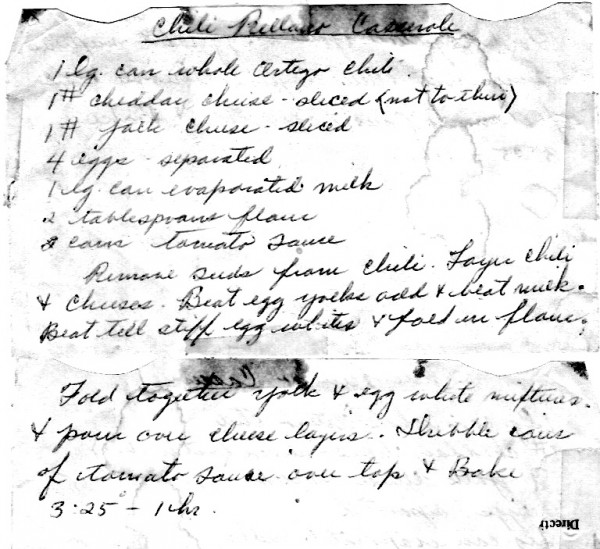 Chili Rellano Casserole
1 lg. can whole Ortego Chili
1# cheddar cheese - sliced (not to thin)
1# jack cheese - sliced
4 eggs - separated
1 lg can evaporated milk
2 tablespoons flour
2 cans tomato sauce
Remove seeds from chili. Layer chili
& cheeses. Beat egg yolks add & beat milk.
Beat till stiff egg whites & fold in flour.
Fold together yolk & egg white mixtures.
& pour over cheese layers. Dribble cans
of tomato sauce over top & Bake
3:25° - 1 hr.
Directi